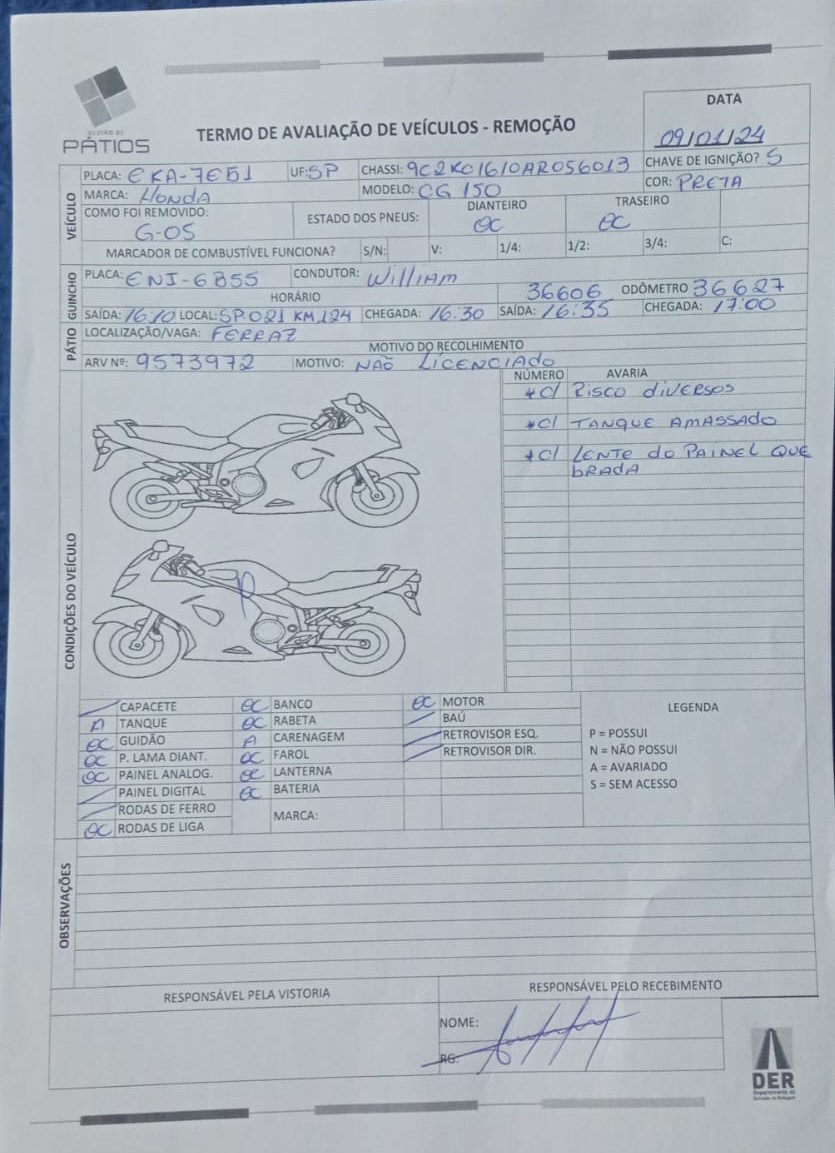 GESTÃO DE
PÁTIOS
TERMO DE AVALIAÇÃO DE VEÍCULOS - REMOÇÃO
DATA
09/01/24
VEÍCULO
PLACA: EKA-7E51 UF: SP CHASSI: 9C2KC1610AR056013 CHAVE DE IGNIÇÃO? S
MARCA: HONDA MODELO: CG 150 COR: PRETA
COMO FOI REMOVIDO: G-05 ESTADO DOS PNEUS: DIANTEIRO OC TRASEIRO OC
MARCADOR DE COMBUSTÍVEL FUNCIONA? S/N: V: 1/4: 1/2: 3/4: C:
GUINCHO
PLACA: ENJ-6B55 CONDUTOR: William
HORÁRIO 36606 ODÔMETRO 36627
SAÍDA: 16:10 LOCAL: SP.021 KM,124 CHEGADA: 16:30 SAÍDA: 16:35 CHEGADA: 17:00
PÁTIO
LOCALIZAÇÃO/VAGA: FERRAZ
MOTIVO DO RECOLHIMENTO
ARV Nº: 9573972 MOTIVO: NÃO LICENCIADO
CONDIÇÕES DO VEÍCULO
NÚMERO AVARIA
*C/ RISCO diVERSOS
*C/ TANQUE AMASSADO
*C/ LENTE do PAINEL QUE
bRADA
P
CAPACETE OC BANCO OC MOTOR
A TANQUE OC RABETA BAÚ
OC GUIDÃO A CARENAGEM RETROVISOR ESQ.
OC P. LAMA DIANT. OC FAROL RETROVISOR DIR.
OC PAINEL ANALOG. OC LANTERNA
PAINEL DIGITAL OC BATERIA
RODAS DE FERRO MARCA:
OC RODAS DE LIGA
LEGENDA
P = POSSUI
N = NÃO POSSUI
A = AVARIADO
S = SEM ACESSO
OBSERVAÇÕES
RESPONSÁVEL PELA VISTORIA RESPONSÁVEL PELO RECEBIMENTO
NOME:
RG:
DER
Departamento de
Estradas de Rodagem